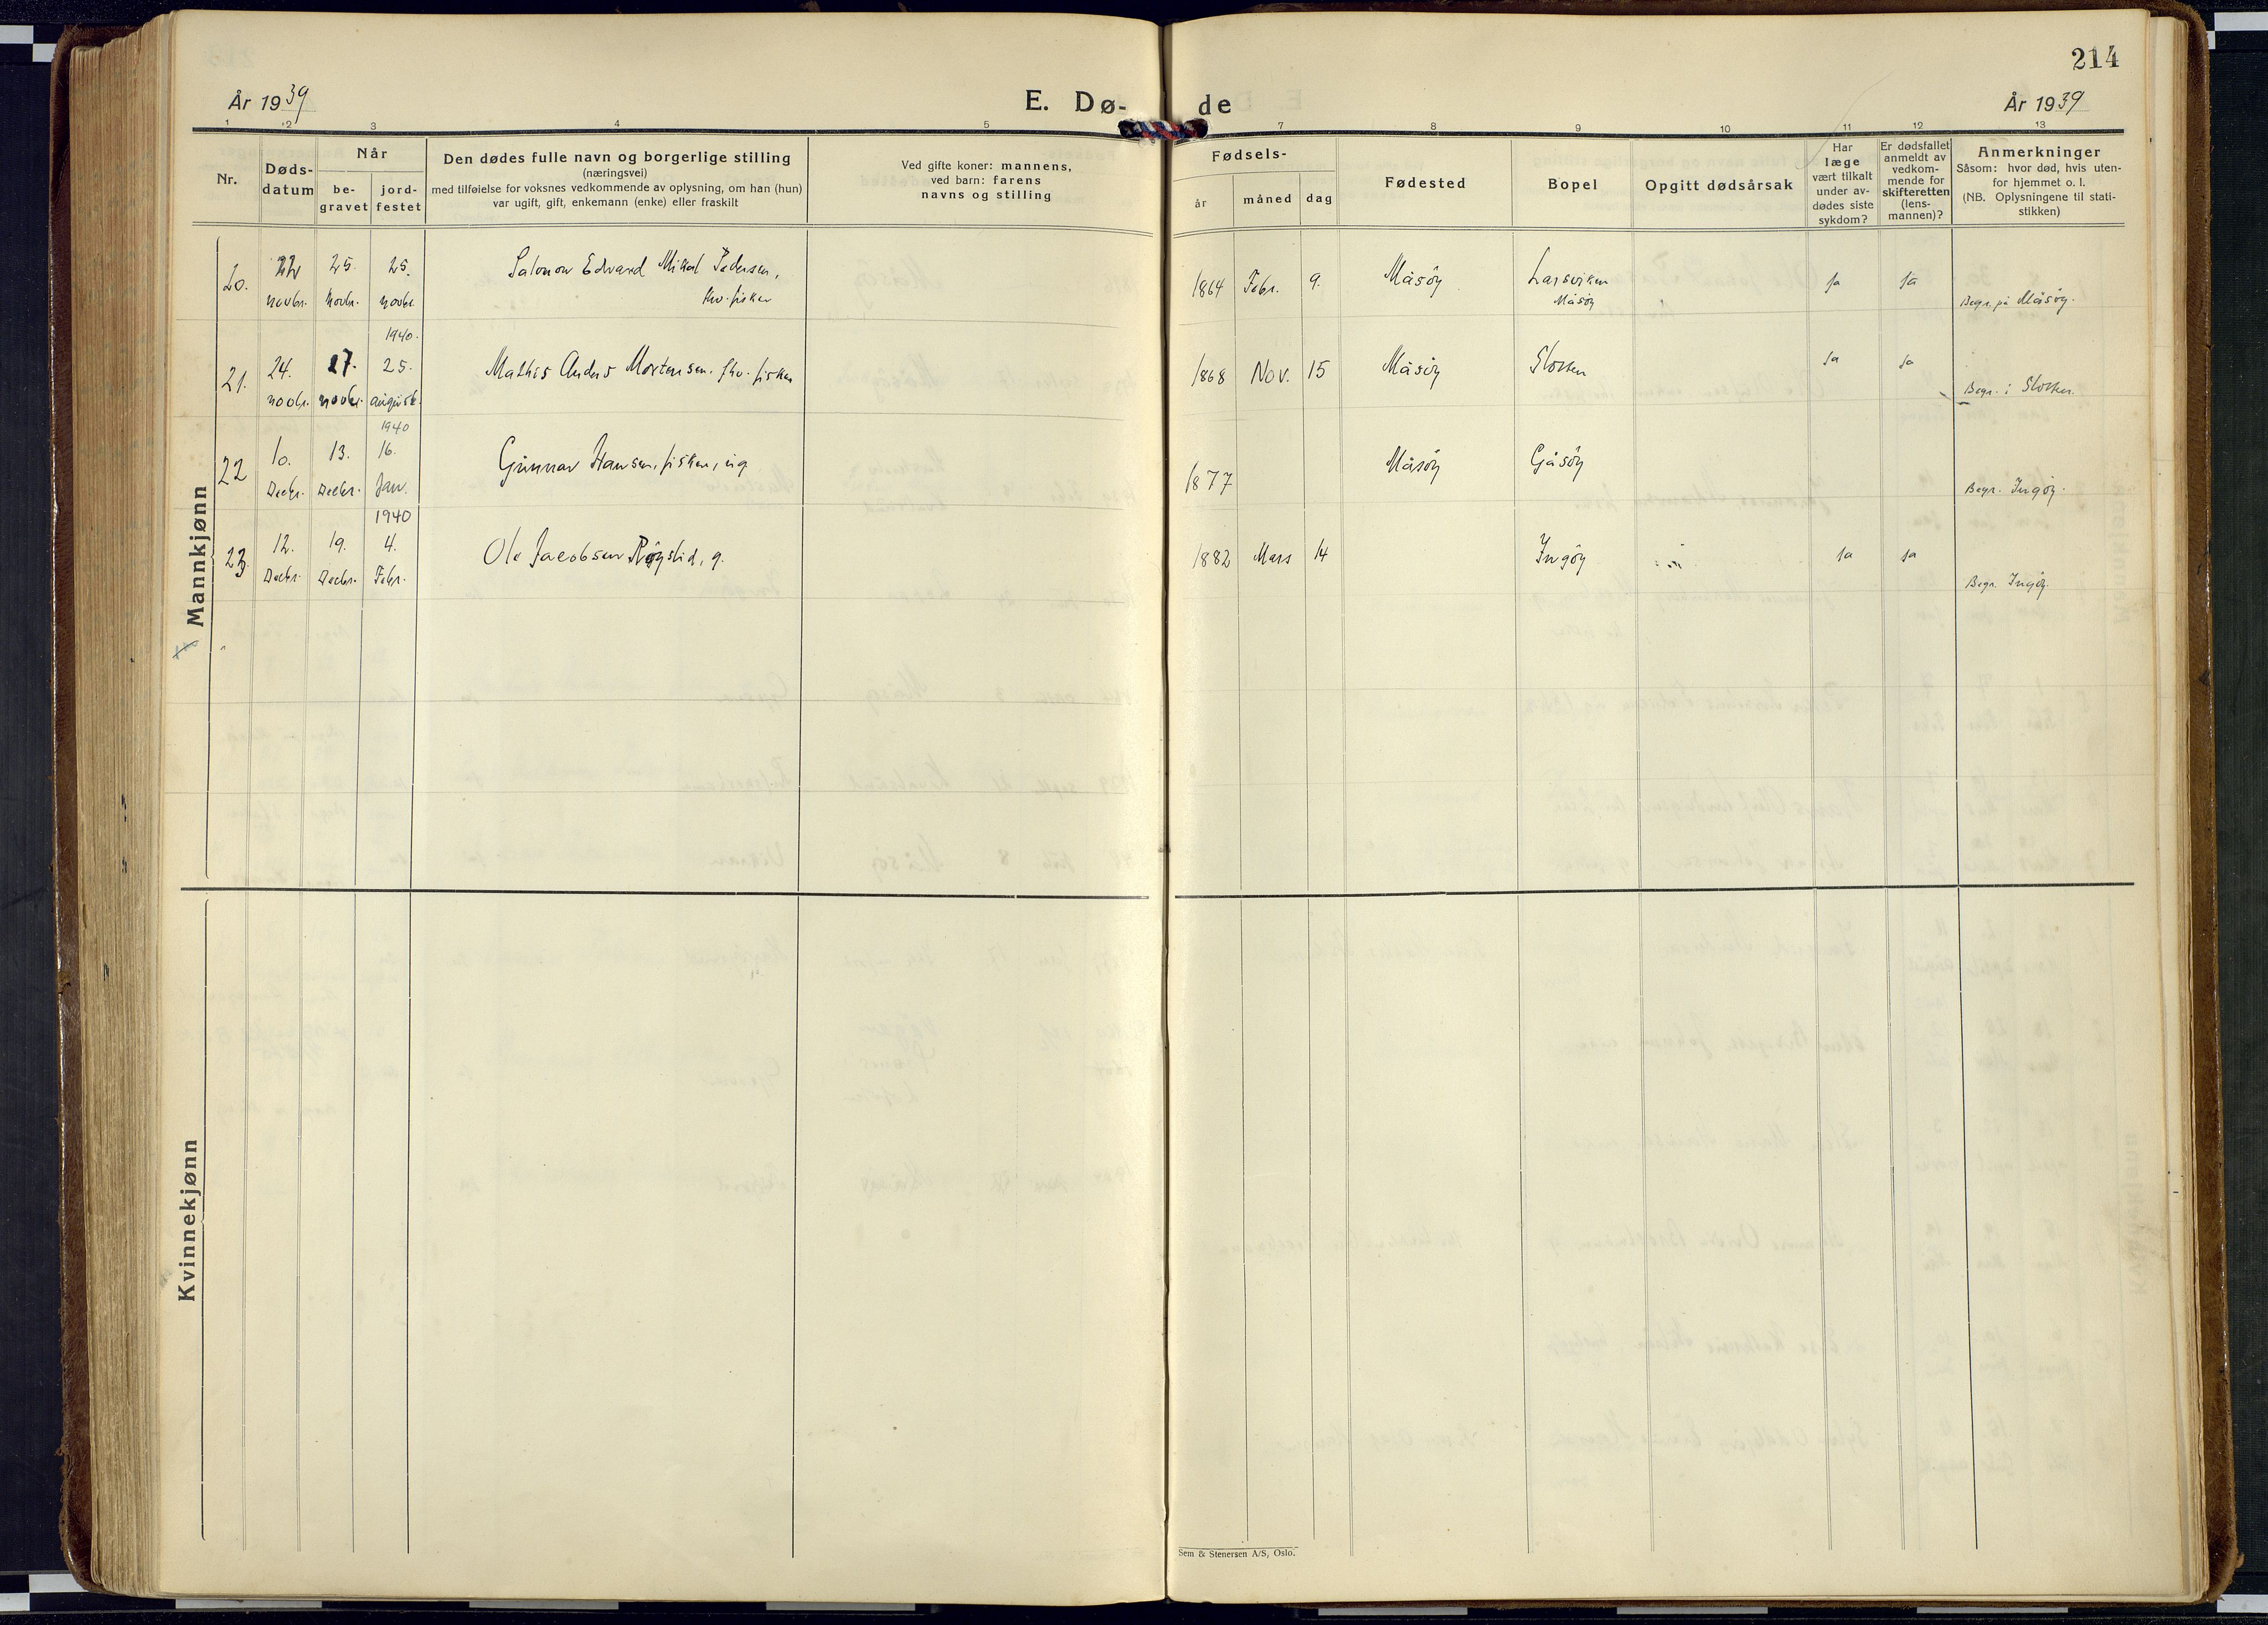 214
År 1939
E. Dø-
de
År 1939
1 2 3 4 5 7 8 9 10 11 12 13
Nr.
Døds-
datum
Når
be-
gravet
jord-
festet
Den dødes fulle navn og borgerlige stilling
(næringsvei)
med tilføielse for voksnes vedkommende av oplysning, om han (hun)
var ugift, gift, enkemann (enke) eller fraskilt
Ved gifte koner: mannens,
ved barn: farens
navns og stilling
Fødsels-
år
måned
dag
Fødested
Bopel
Opgitt dødsårsak
Har
læge
vært tilkalt
under av-
dødes siste
sykdom?
Er dødsfallet
anmeldt av
vedkom-
mende for
skifteretten
(lens-
mannen)?
Anmerkninger
Såsom: hvor død, hvis uten-
for hjemmet o. l.
(NB. Oplysningene til stati-
stikken)
Mannkjønn
20. 22 25. 25. Salomon Edvard Mikal Pedersen, 1864 Febr. 9. Måsöy Larsviken ja ja
novbr. Novbr. novbr. fhv. fisker Måsöy Begr. på Måsöy.
1940.
21. 24. 27. 25. Mathis Anders Mortensen, fhv. fisker 1868 Nov. 15 Måsöy Slotten ja ja
novbr. novbr. august. Begr. i Slotten.
1940
22 10. 13. 16. Gunnar Hansen, fisker, ug. 1877 Måsöy Gåsöy
Decbr. Decbr. Jan. Begr. Ingöy.
1940
23. 12. 19. 4. Ole Jacobsen Röyslid, g. 1882 Mars 14 Ingöy ja ja
Decbr. Decbr. Febr. Begr. Ingöy.
Kvinnekjønn
Sem & Stenersen A/S, Oslo.